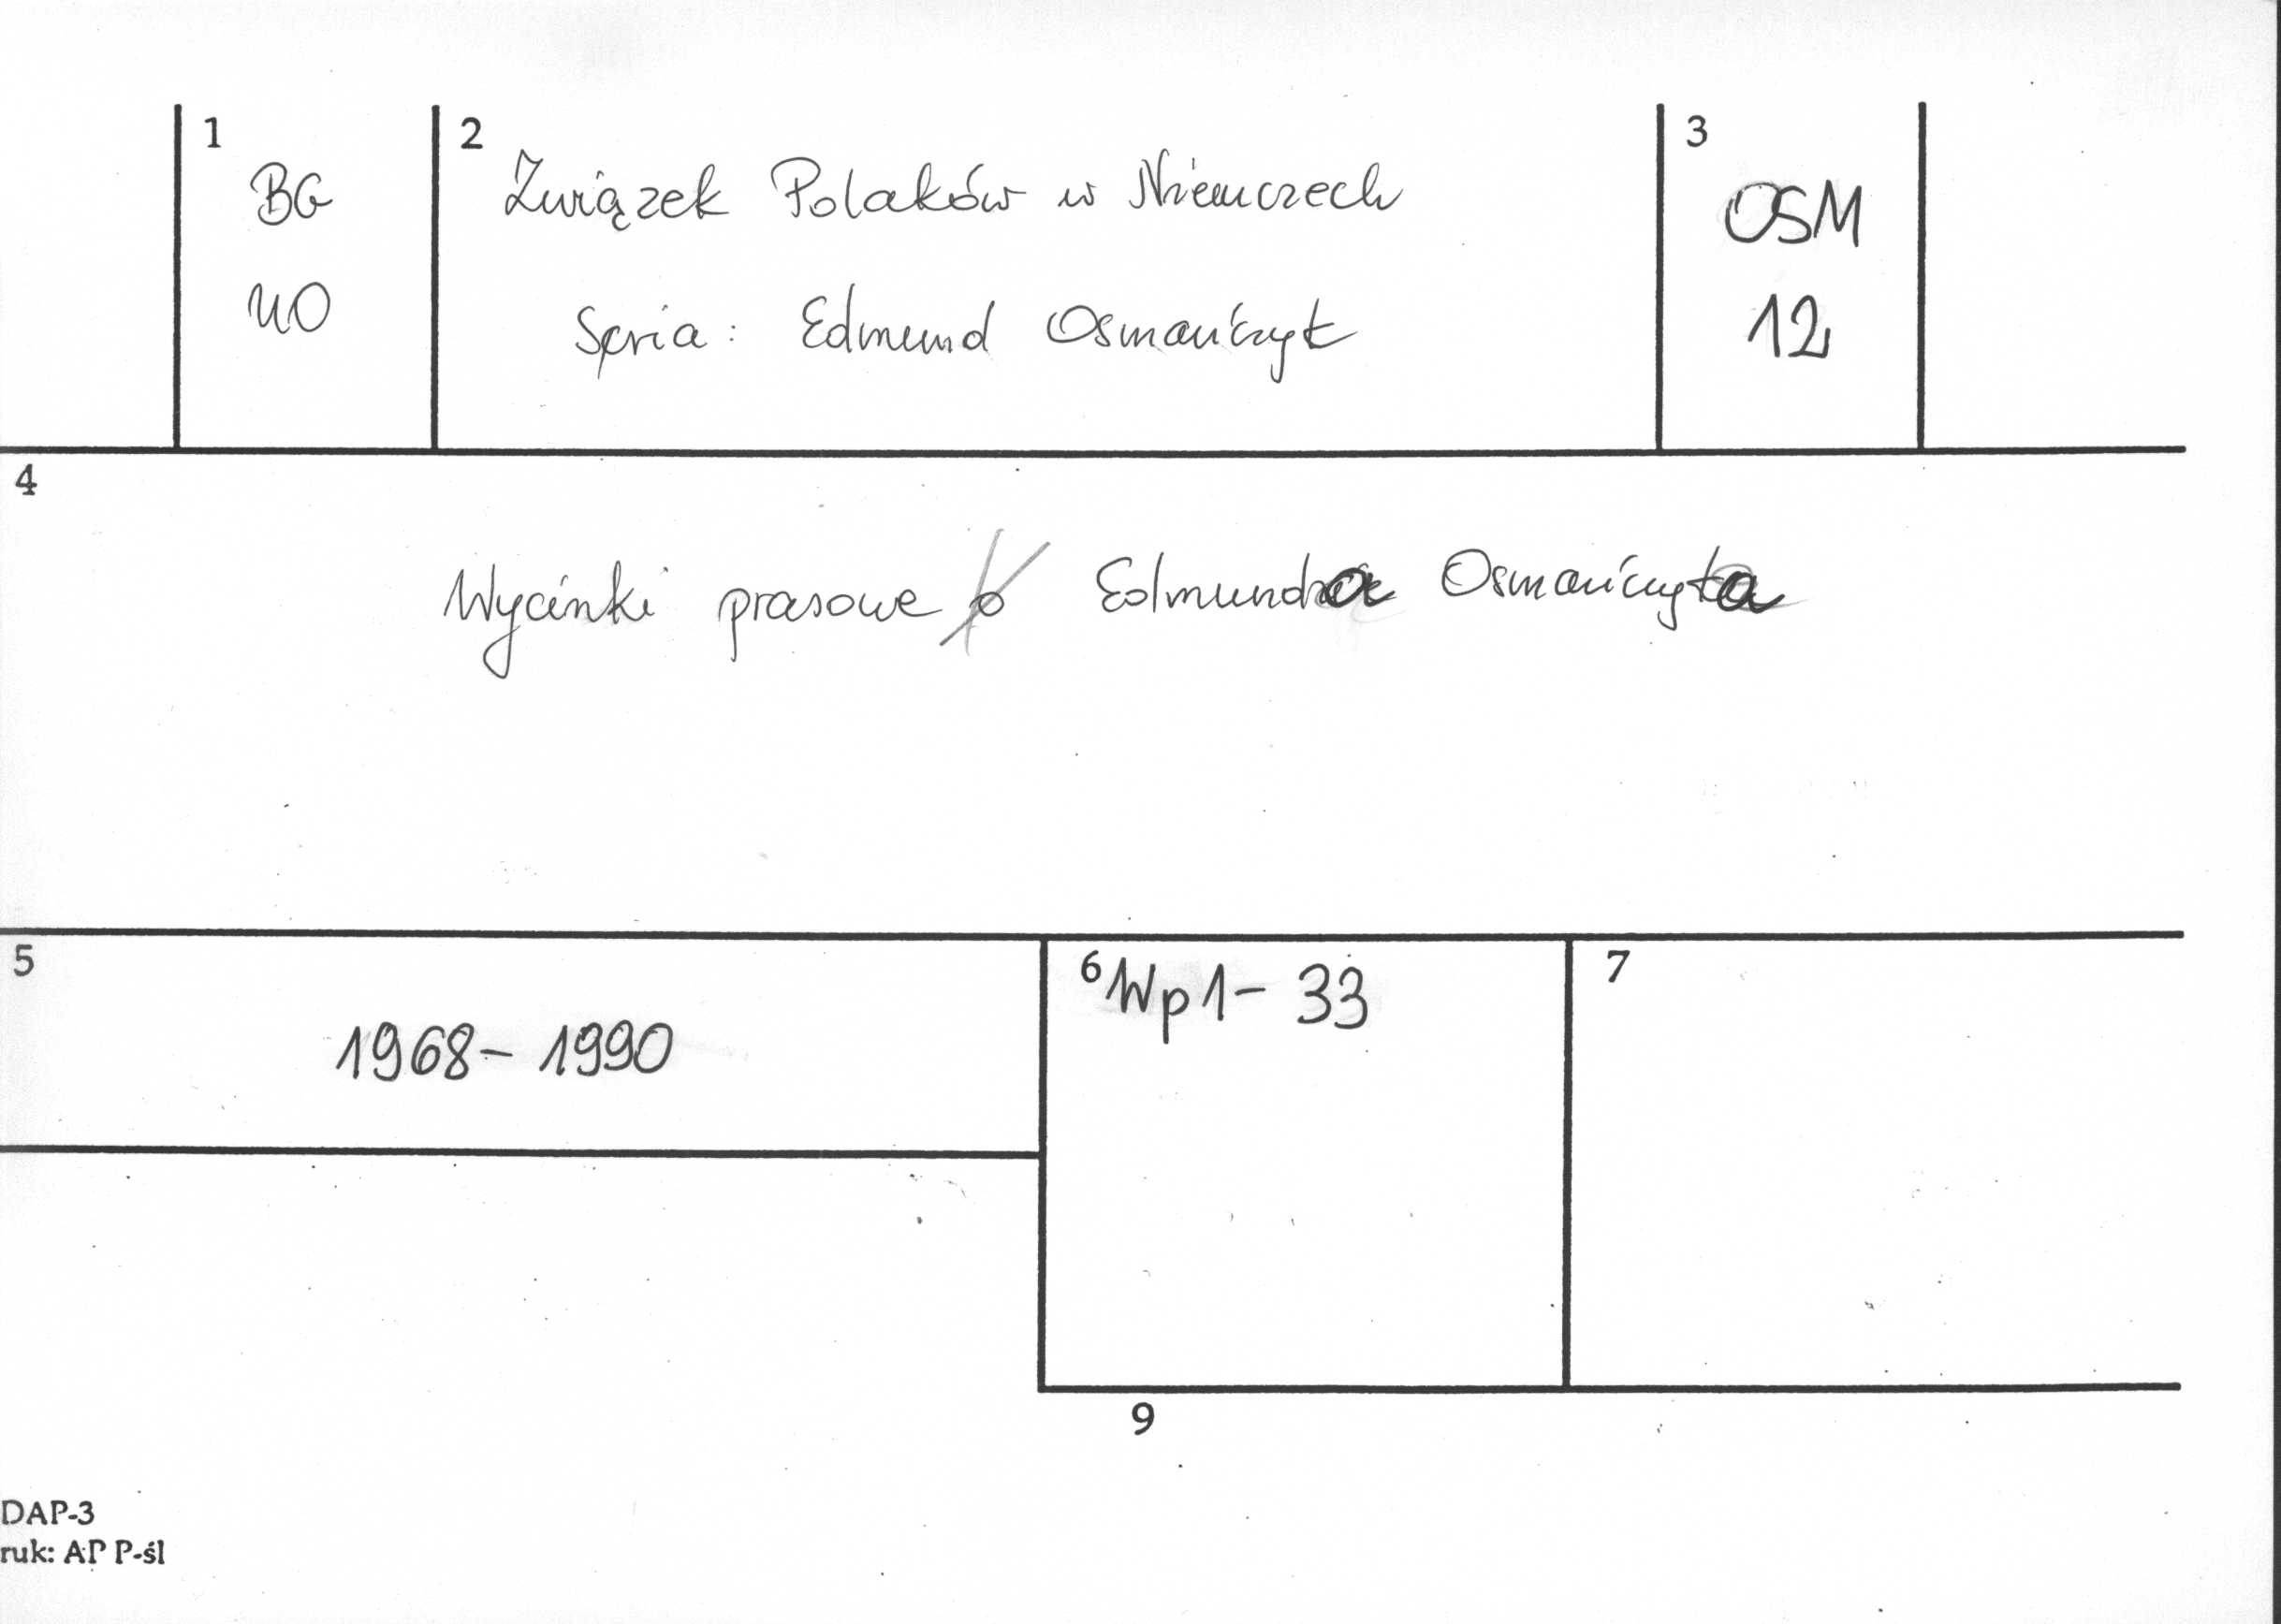 1
BG
UO
2
Związek Polaków w Niemczech
Seria: Edmund Osmańczyk
3
OSM
12
4
Wycinki prasowe o Edmunda Osmańczyka
5
1968-1990
6
Wp 1-33
7
9
DAP-3
ruk: AP P-śl